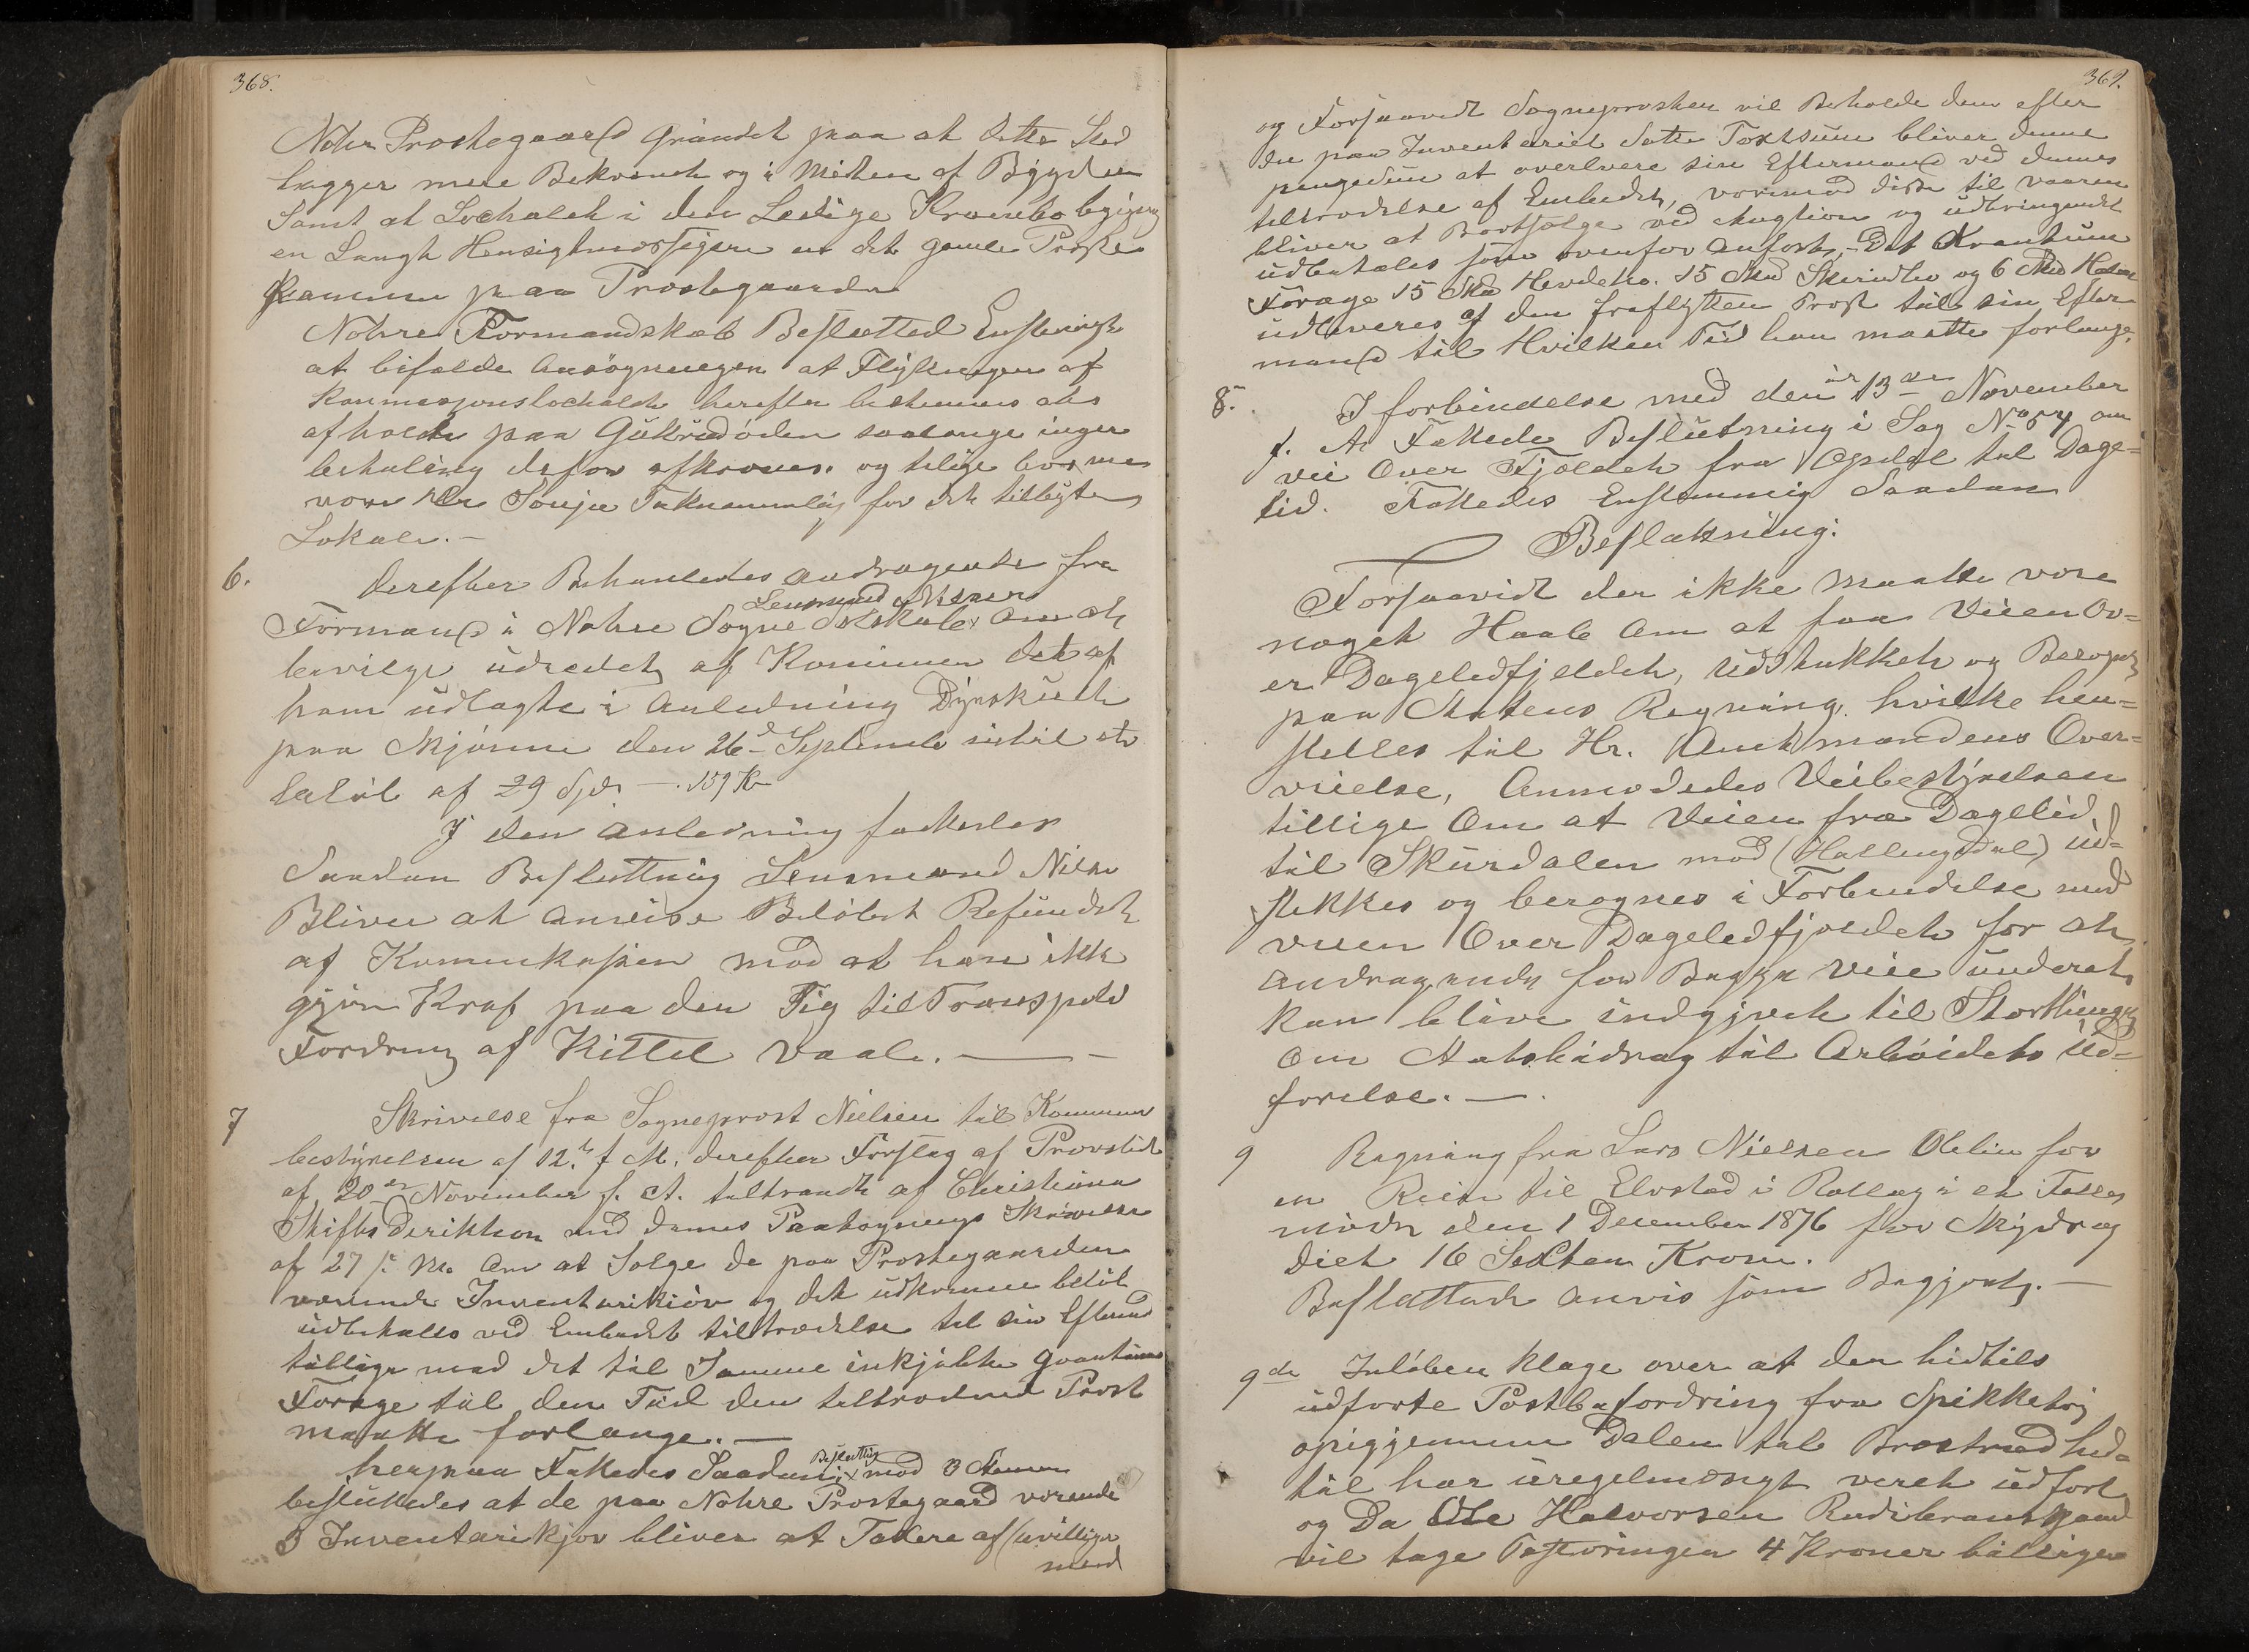 368.
Nohre Prostegaard Grundet paa at dette Sted
lagger mere Bekvemt og i Midten af Bygden
Samt at Lochalet i den Ledige Krambobygning
en Langt Hensigtmæsigere en det gamle Prosse
kamme paa Prostegaarden
Nohre Formandskab Besluttet Enstemigt
at bifalde Ansøgningen at Flytningen af
Kommisjonslochalet herefter bestemmes ats
afholde paa Gulsrudøden saalange ingen
betaling derfor afkræves. og tilige bevidnes
vor Taknæmmlig for det tilbyte
Lokale.-
6. Derefter Behanledes andragende fra
Lensmand Nilsen
Formand i Nohre Sogne Selskab x Om at
bevilge udredet af Kommunen det af
ham udlagte i Anledning Dyrskuet
paa Mjønne den 26d Septembr intil et
beløb af 29 Spdr —. 159 Kr
I den anledning fattedes
Saadan Besluttning Lensmand Nilsen
Bliver at anvise Beløbet Refundert
af Kommekassen mod at han ikke
gjør Kraf paa den Tig til Transpold
Fordring af Kittel Vaale. —
7 Skrivelse fra Sogneprost Nielsen til Kommune
bestyrelsen af 12.te f M. derefter Forslag af Provstiet
af 20de November f. A. tiltraadt af Christiania
Stifts Diriktion med dennes Paategnings Skrivelse
af 27 f. M. Om at Solge de paa Prostegaarden
værende Inventarikiør og det udkomne beløb
udbetalles ved Embedet tiltrædelse til sin Eftermd
tillige med det til Samme inkjøbte Qvantums
Forage til den Tid den tiltrædende Prost
maatte forlange. —
Besluttning
herpaa Fattedes Saadan x mod 3 Stemmer
besluttedes at de paa Nohre Prostegaard værende
3 Inventarikjør bliver at Taxere af uvillige
mend
369.
og Forsaavidt Sogneprosten vil Beholde dem efter
den paa Inventariet Satte Taxtsum bliver denne
pengesum at overlevere sin Eftermand ved dennes
tiltrædelse af Embedet, vorimod disse til vaaren
bliver at Bortsælge ved Augtion og udbringendet
udbetales som ovenfor anført. – Det Kvantum
Forage 15 Skd Hevdehø. 15 Skd Skrindhø og 6 Skd Halm
udleveres af den fraflyttende Prost til sin Efter
mand til Hvilken Tid han maatte forlange.
8. I forbindelse med den 13de November
f. A. Fattede Beslutning i Sag No 54 om
vei Over Fjældet fra Opdal til Dage=
lid. Fattedes Enstemmig Saadan
Beslutning:
Forsaavidt der ikke maatte være
noget Haab Om at faa Veien Ov=
er Dagelidfjeldet, Udstukket og Beregnet
paa Statens Regning. hvilke hen=
stilles til Hr. Amtmandens Over=
veielse, Anmodedes Veibestyrelsen
tillige Om at Veien fra Dagelid
til Skurdalen mod (Hallingdal) ud=
stekkes og beregnes i Forbindelse med
veien Over Dagelidfjeldet for at
andragende for Begge Veie underet
kan blive indgivet til Storthinget
Om Statsbidrag til Arbeidets Ud=
førelse. —.
9 Regning fra Lars Nielsen Olelien for
en Reise til Elvstad i Rollag i et Fælles
møde den 1 December 1876 for Skyds og
Diet 16 Sexten Kroner.
Besluttede anvis som Begjært. —
9de Inløben Klage over at den hidtils
udførte Postbefordring fra Spikkehøi
opigjennem Dalen til Brøstrud hid=
til har uregelmesigt veret udført
og Da Ole Halvorsen Rudibraatgaard
vil tage Postføringen 4 Kroner billigere